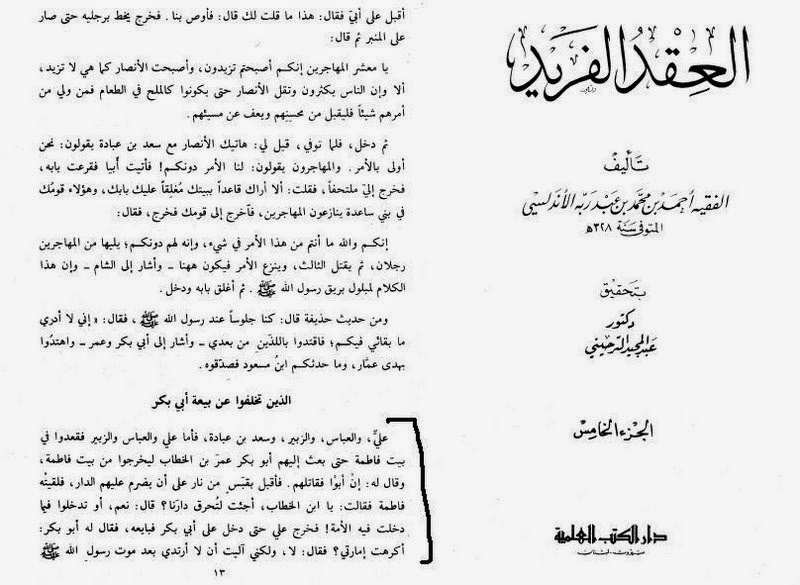 العِقْدُ الفَرِيد
تَأليفْ
الفقيه أحمد بن محمد بن عبد ربه الأندلسي
المتوفى سنة ٣٢٨هـ
بتحقيق
دكتور
عبد المجيد الترحيني
الجزء الخامس
دار الكتب العلمية
بيروت - لبنان
أقبل على أبيّ فقال: هذا ما قلت لك قال: فأوص بنا. فخرج يخط برجليه حتى صار
على المنبر ثم قال:
يا معشر المهاجرين إنكم أصبحتم تزيدون، وأصبحت الأنصار كما هي لا تزيد،
ألا وإن الناس يكثرون وتقل الأنصار حتى يكونوا كالملح في الطعام فمن ولي من
أمرهم شيئاً فليقبل من محسنهم ويعف عن مسيئهم.
ثم دخل، فلما توفي، قيل لي: هاتيك الأنصار مع سعد بن عبادة يقولون: نحن
أولى بالأمر. والمهاجرون يقولون: لنا الأمر دونكم! فأتيت أُبيا فقرعت بابه،
فخرج إليّ ملتحفاً، فقلت: ألا أراك قاعداً ببيتك مُغلِقاً عليك بابك، وهؤلاء قومُك
في بني ساعدة ينازعون المهاجرين، فآخرج إلى قومك فخرج، فقال:
إنكم والله ما أنتم من هذا الأمر في شيء، وإنه لهم دونكم؛ يليها من المهاجرين
رجلان، ثم يقتل الثالث، وينزع الأمر فيكون ههنا ـ وأشار إلى الشام ـ وإن هذا
الكلام لمبلول بريق رسول الله ﷺ. ثم أغلق بابه ودخل.
ومن حديث حذيفة قال: كنا جلوساً عند رسول الله ﷺ، فقال: «إني لا أدري
ما بقائي فيكم؛ فاقتدوا باللذَين من بعدي ـ وأشار إلى أبي بكر وعمر ـ واهتدُوا
بهدى عمَّار، وما حدثكم ابنُ مسعود فصدّقوه.
الذين تخلفوا عن بيعة أبي بكر
عليٌّ، والعباس، والزبير، وسعد بن عبادة، فأما علي والعباس والزبير فقعدوا في
بيت فاطمة حتى بعث إليهم أبو بكر عمرَ بن الخطاب ليخرجوا من بيت فاطمة،
وقال له: إنْ أبوْا فقاتلهم. فأقبل بقبَسٍ من نار على أن يضرم عليهم الدار، فلقيتْه
فاطمة فقالت: يا ابن الخطاب، أجئت لتُحرق دارَنا؟ قال: نعم، أو تدخلوا فيما
دخلت فيه الأمة! فخرج علي حتى دخل على أبي بكر فبايعه، فقال له أبو بكر:
أكرهت إمارتي؟ فقال: لا، ولكني آليت أن لا أرتدي بعد موت رسول الله ﷺ
١٣